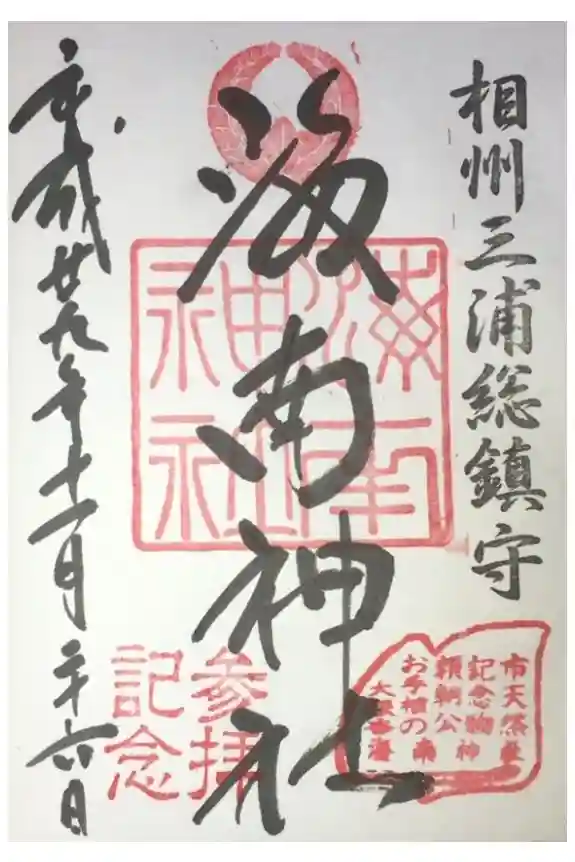 相州三浦総鎮守
海南神社
海南
神社
平成廿九年十一月廿六日
参拝
記念
市天然
記念物
頼朝公
お手植の
大銀杏
海南神社